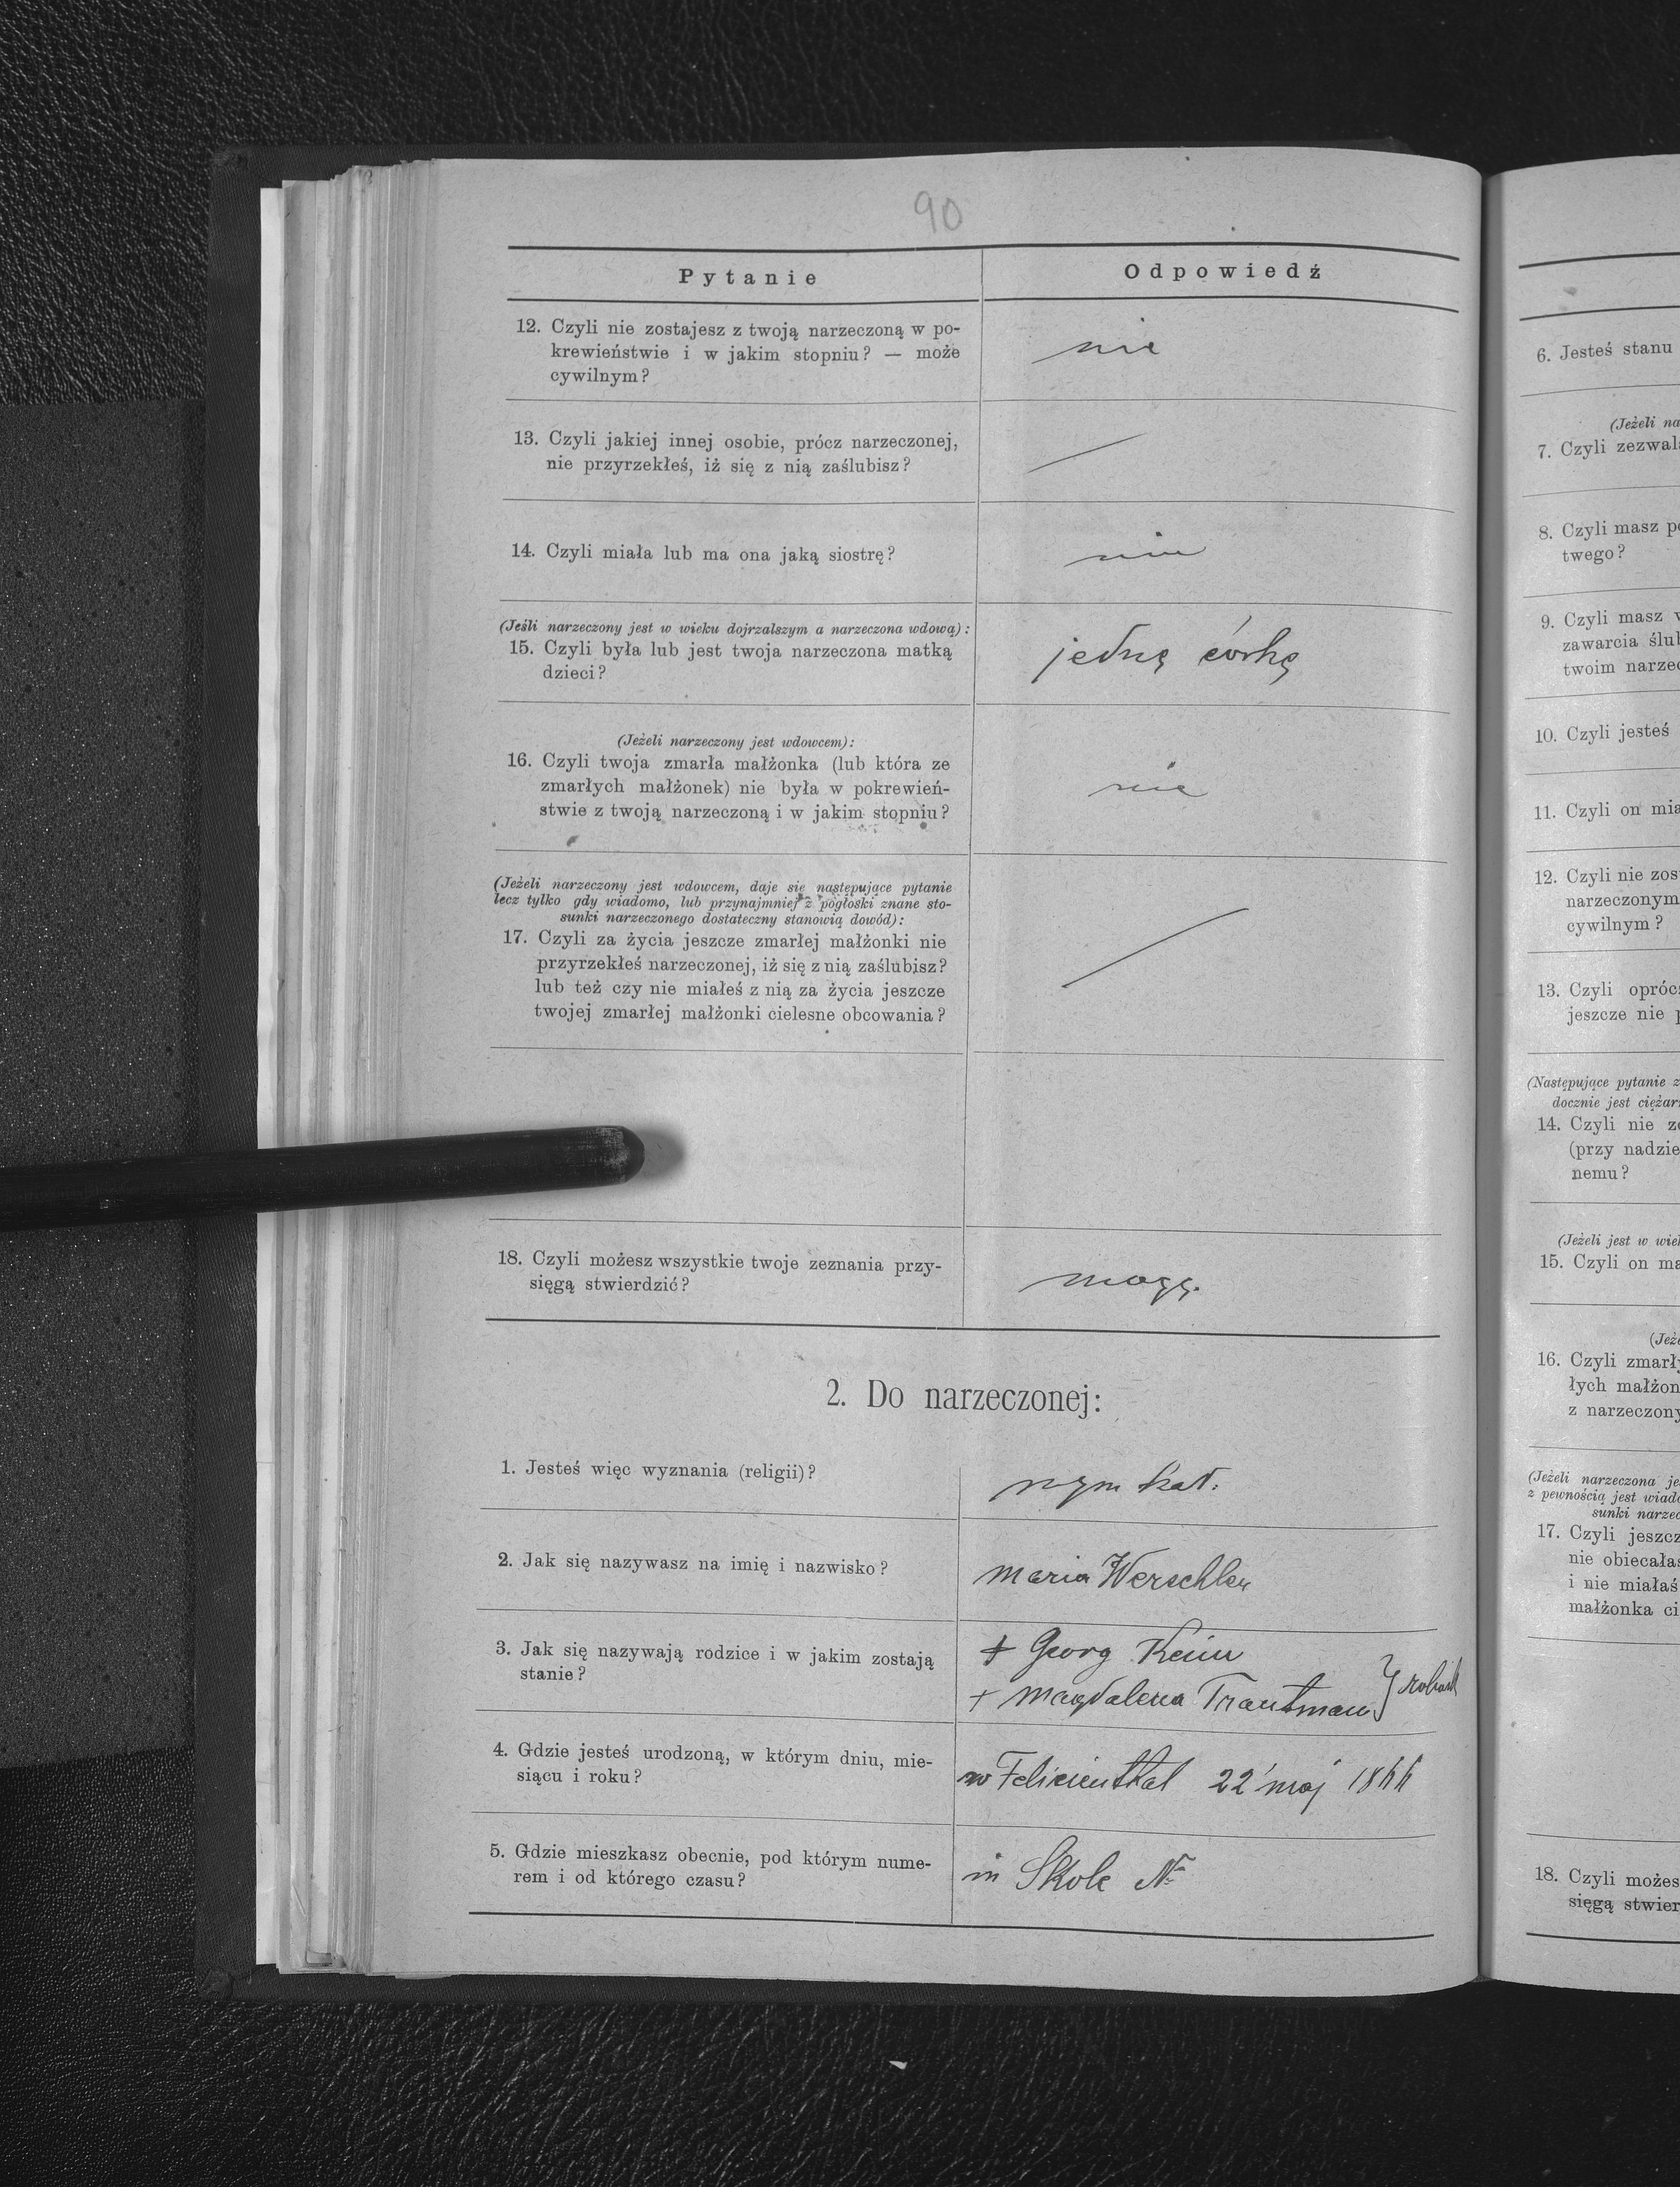 90
Pytanie
Odpowiedź
12. Czyli nie zostajesz z twoją narzeczoną w po-
krewieństwie i w jakim stopniu? — może
cywilnym?
nie
13. Czyli jakiej innej osobie, prócz narzeczonej,
nie przyrzekłeś, iż się z nią zaślubisz?
14. Czyli miała lub ma ona jaką siostrę?
nie
(Jeśli narzeczony jest w wieku dojrzalszym a narzeczona wdową):
15. Czyli była lub jest twoja narzeczona matką
dzieci?
jedną córkę
(Jeżeli narzeczony jest wdowcem):
16. Czyli twoja zmarła małżonka (lub która ze
zmarłych małżonek) nie była w pokrewień-
stwie z twoją narzeczoną i w jakim stopniu?
nie
(Jeżeli narzeczony jest wdowcem, daje się następujące pytanie
lecz tylko gdy wiadomo, lub przynajmniej z pogłoski znane sto-
sunki narzeczonego dostateczny stanowią dowód):
17. Czyli za życia jeszcze zmarłej małżonki nie
przyrzekłeś narzeczonej, iż się z nią zaślubisz?
lub też czy nie miałeś z nią za życia jeszcze
twojej zmarłej małżonki cielesne obcowania?
18. Czyli możesz wszystkie twoje zeznania przy-
sięgą stwierdzić?
mogę.
2. Do narzeczonej:
1. Jesteś więc wyznania (religii)?
rzym kat.
2. Jak się nazywasz na imię i nazwisko?
Maria Werschler
3. Jak się nazywają rodzice i w jakim zostają
stanie?
+ Georg Keim
+ Magdalena Trautman
4. Gdzie jesteś urodzoną, w którym dniu, mie-
siącu i roku?
w Felicienthal 22 maj
5. Gdzie mieszkasz obecnie, pod którym nume-
rem i od którego czasu?
in Skole №
6. Jesteś stanu
(Jeżeli na
7. Czyli zezwal
8. Czyli masz p
twego?
9. Czyli masz
zawarcia ślu
twoim narze
10. Czyli jesteś
11. Czyli on mia
12. Czyli nie zos
narzeczonym
cywilnym?
13. Czyli opróc
jeszcze nie
(Następujące pytanie z
docznie jest ciężar
14. Czyli nie z
(przy nadzie
nemu?
(Jeżeli jest w wie
15. Czyli on ma
(Jeż
16. Czyli zmarł
łych małżon
z narzeczony
(Jeżeli narzeczona je
z pewnością jest wiad
sunki narze
17. Czyli jeszcz
nie obiecała
i nie miałaś
małżonka ci
18. Czyli możes
sięgą stwier